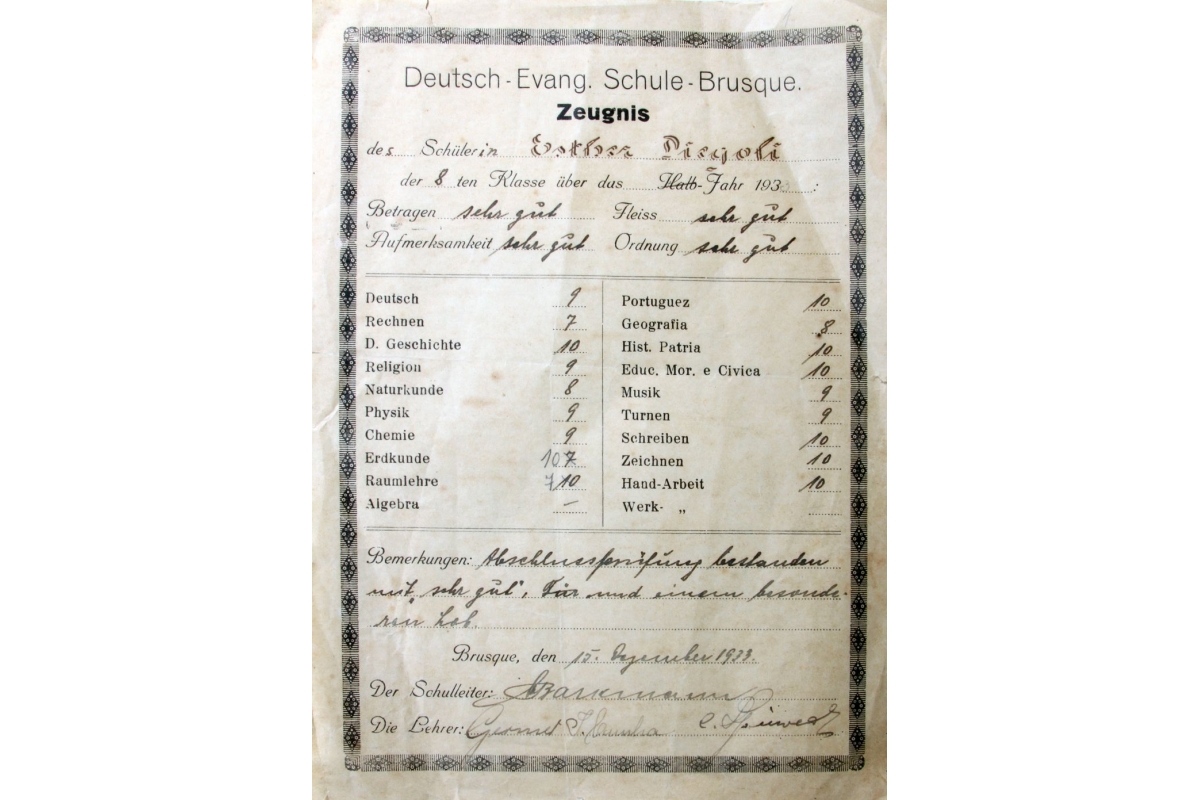 Deutsch-Evang. Schule-Brusque.
Zeugnis
des Schülerin Esther Piegoli
der 8 ten Klasse über das Halb-Jahr 193 :
Betragen sehr gut Fleiss sehr gut
Aufmerksamkeit sehr gut Ordnung sehr gut
Deutsch 9
Rechnen 7
D. Geschichte 10
Religion 9
Naturkunde 8
Physik 9
Chemie 9
Erdkunde 10 7
Raumlehre 7 10
Algebra –
Portuguez 10
Geografia 8
Hist. Patria 10
Educ. Mor. e Civica 10
Musik 9
Turnen 9
Schreiben 10
Zeichnen 10
Hand-Arbeit 10
Werk- „
Bemerkungen: Abschlussprüfung bestanden
mit „sehr gut", und einem besonde-
ren Lob.
Brusque, den 15. Dezember 1933.
Der Schulleiter:
Die Lehrer: